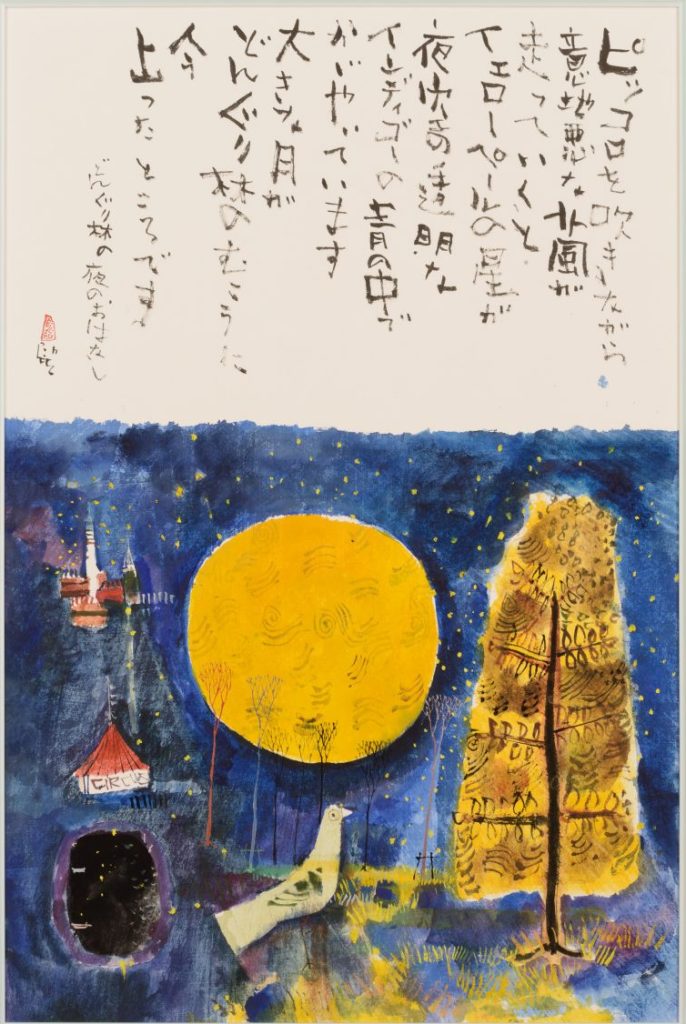 ピッコロを吹きながら
意地悪な北風が
走っていくと
イェローペールの星が
夜火の透明な
インディゴーの青の中で
かがやいています
大きな月が
どんぐり林のむこうに
今
上ったところです
どんぐり林の夜のおはなし
CIRCUS